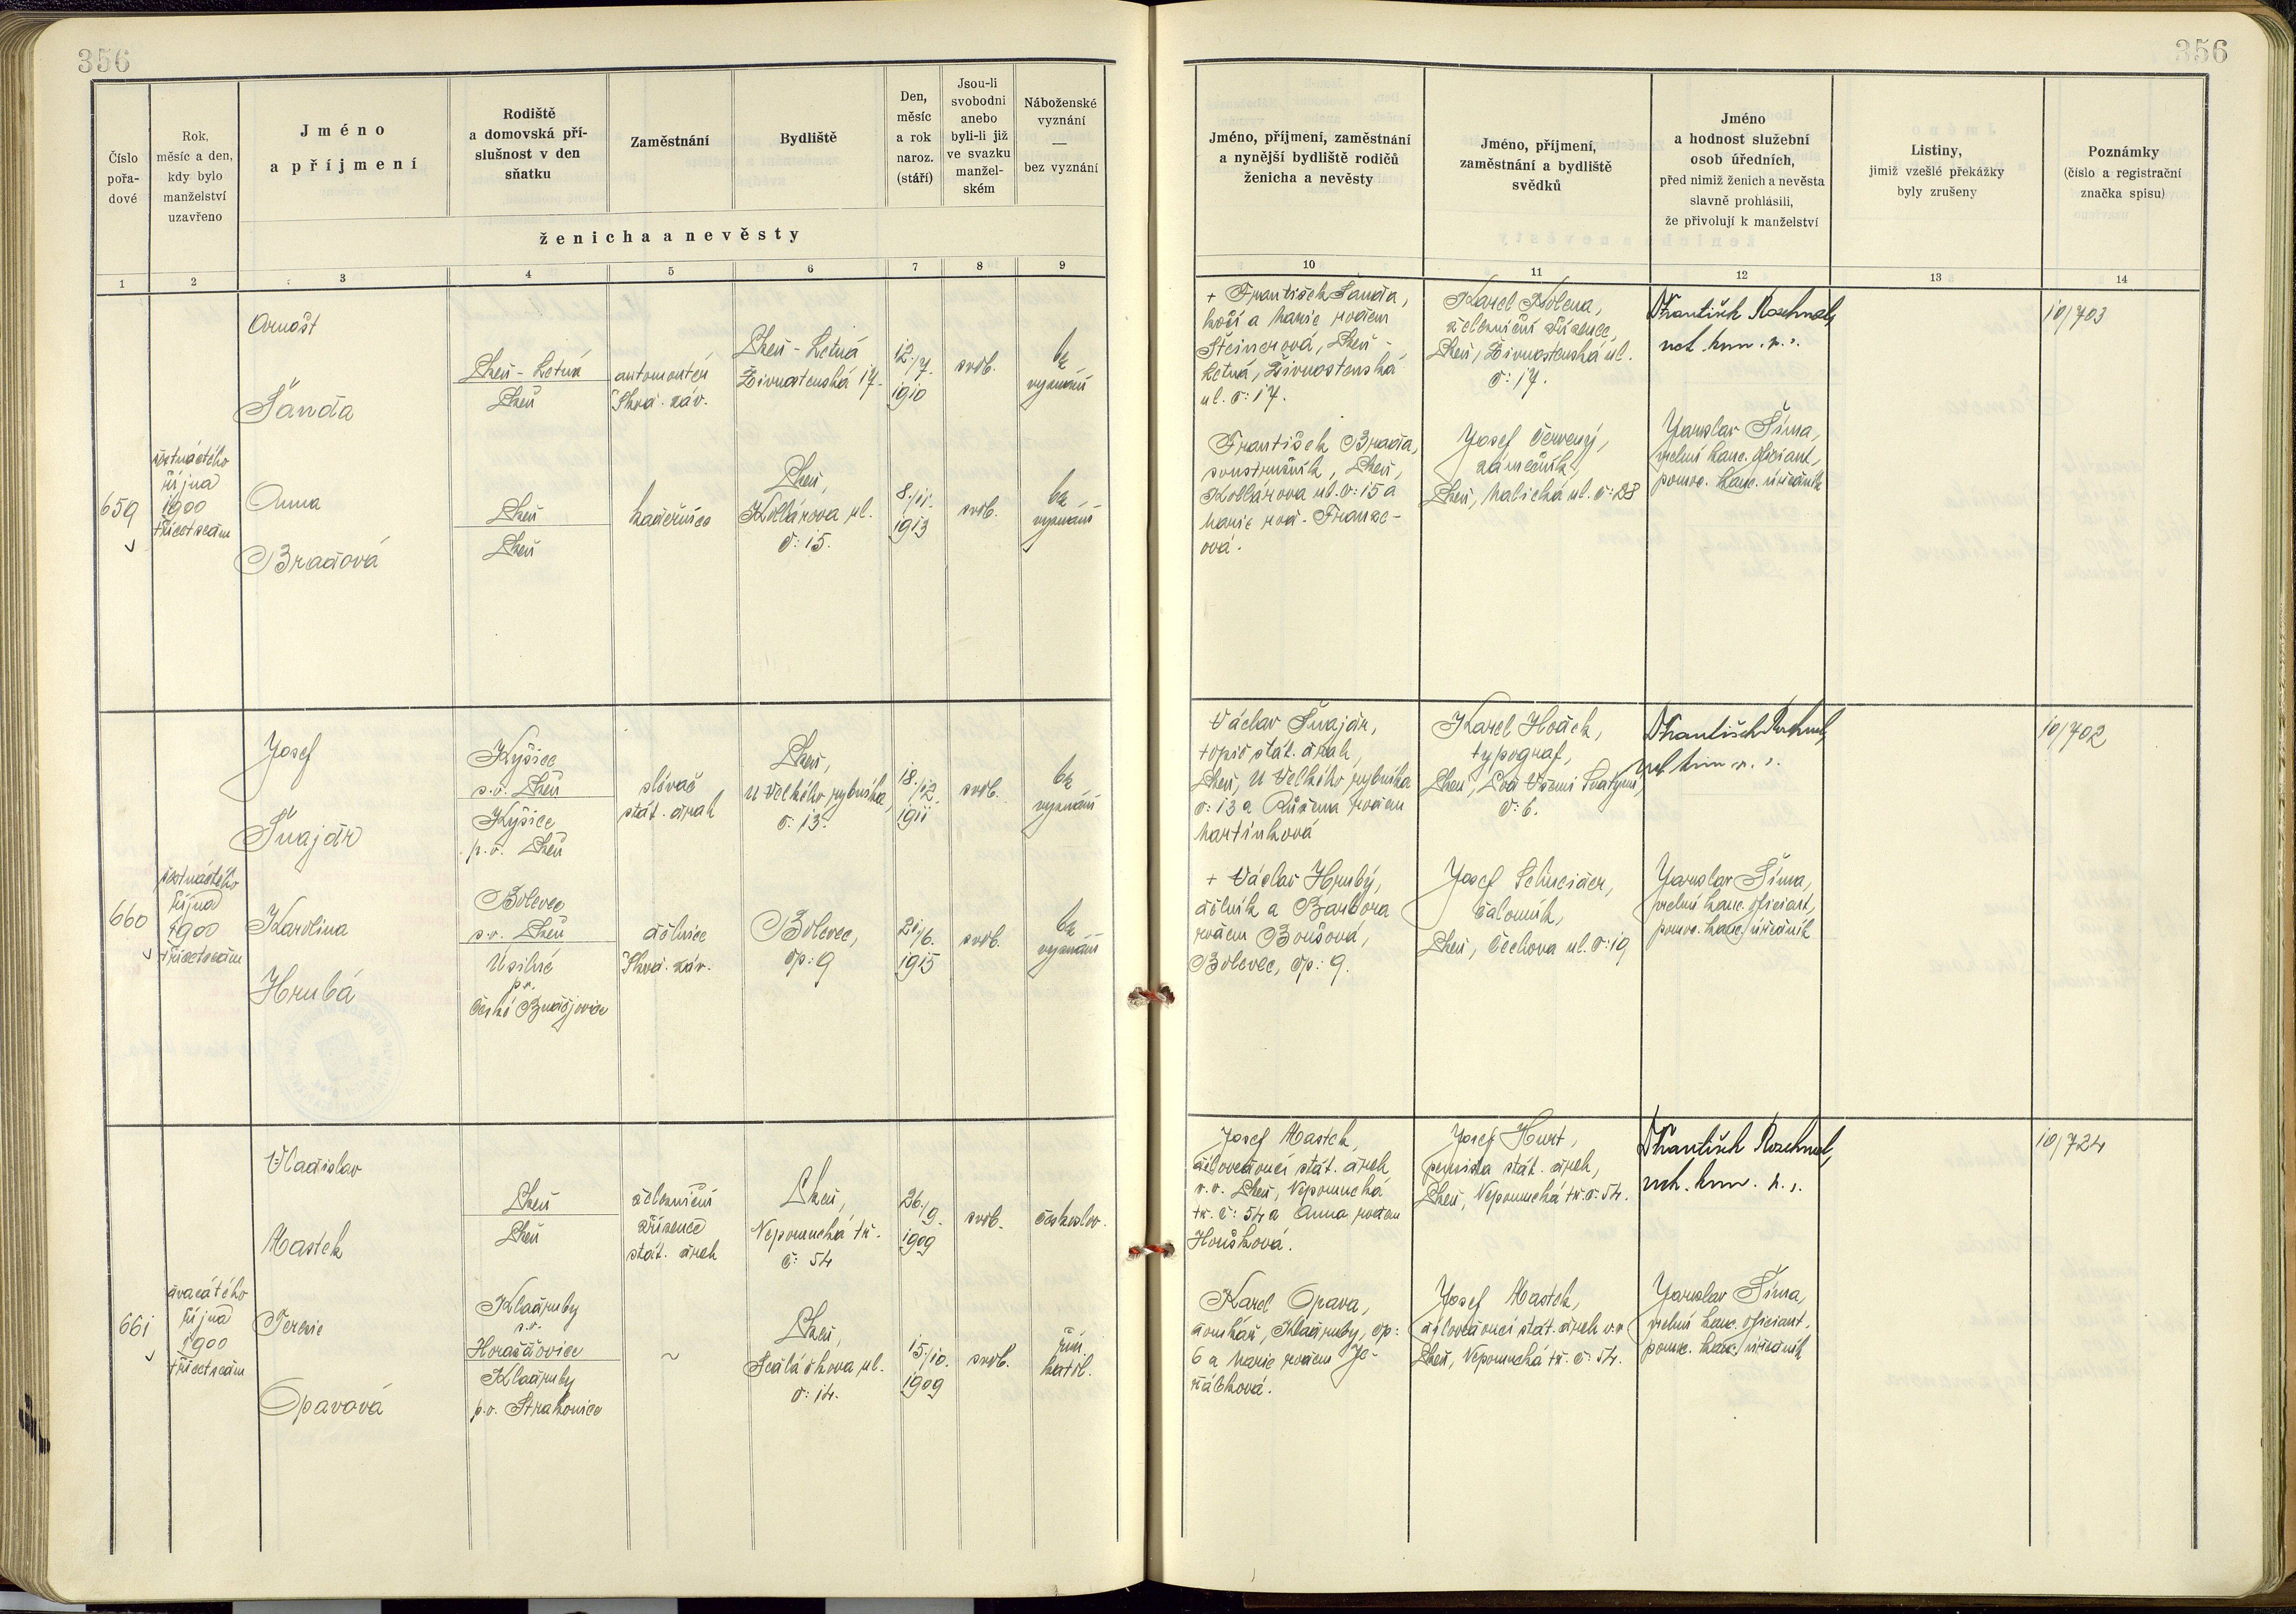 356
356
Číslo
pořa-
dové
Rok,
měsíc a den,
kdy bylo
manželství
uzavřeno
Jméno
a příjmení
Rodiště
a domovská pří-
slušnost v den
sňatku
Zaměstnání
Bydliště
Den,
měsíc
a rok
naroz.
(stáří)
Jsou-li
svobodni
anebo
byli-li již
ve svazku
manžel-
ském
Náboženské
vyznání
—
bez vyznání
ženicha a nevěsty
1 2 3 4 5 6 7 8 9
Jméno, příjmení, zaměstnání
a nynější bydliště rodičů
ženicha a nevěsty
Jméno, příjmení,
zaměstnání a bydliště
svědků
Jméno
a hodnost služební
osob úředních,
před nimiž ženich a nevěsta
slavně prohlásili,
že přivolují k manželství
Listiny,
jimiž vzešlé překážky
byly zrušeny
Poznámky
(číslo a registrační
značka spisu)
10 11 12 13 14
659
šestnáctého
října
1900
třicetsedm
Arnošt
Šanda
Plzeň - Letná
Plzeň
automontér
Škod. záv.
Plzeň - Letná
Živnostenská 17.
12./7.
1910
svob.
bez
vyznání
Anna
Bradová
Plzeň
Plzeň
kadeřnice
Plzeň,
Kollárova ul.
č: 15.
8./11.
1913
svob.
bez
vyznání
+ František Šanda,
kočí a Marie rodem
Steinerová, Plzeň -
Letná, Živnostenská
ul. č: 17.
František Brada,
soustružník, Plzeň,
Kollárova ul. č: 15 a
Marie rod. Franze-
ová.
Karel Kolena,
železniční zřízenec,
Plzeň, Živnostenská ul.
č: 17.
Josef Červený,
zámečník,
Plzeň, Malická ul. č: 28
František
Jaroslav Šíma,
kanc. oficiant,
pomoc. kanc. úředník
10/703
660
šestnáctého
října
1900
třicetsedm
Josef
Šnajdr
Kyšice
s.o. Plzeň
Kyšice
p.o. Plzeň
slévač
stát. drah
Plzeň,
U Velkého rybníka,
č: 13.
18./12.
1911
svob.
bez
vyznání
Karolina
Hrubá
Bolevec
s.o. Plzeň
Úsilné
p.o.
České Budějovice
dělnice
Škod. záv.
Bolevec,
čp: 9
21./6.
1915
svob.
bez
vyznání
Václav Šnajdr,
topič stát. drah,
Plzeň, U Velkého rybníka
č: 13 a Růžena rodem
Martinková
+ Václav Hrubý,
dělník a Barbora
rodem Boušová,
Bolevec, čp: 9.
Karel
typograf,
Plzeň, Pod Všemi Svatými,
č: 6.
Josef Schneider,
čalouník,
Plzeň, Čechova ul. č: 19
František
Jaroslav Šíma,
kanc. oficiant,
pomoc. kanc. úředník
10/702
661
dvacátého
října
1900
třicetsedm
Vladislav
Mastek
Plzeň
Plzeň
železniční
zřízenec
stát. drah
Plzeň,
Nepomucká tř.
č: 54
26./9.
1909
svob.
českoslov.
Terezie
Opavová
Kladruby
s.o.
Horažďovice
Kladruby
p.o. Strakonice
~
Plzeň,
Sedláčkova ul.
č: 14.
15./10.
1909
svob.
řím.
katol.
Josef Mastek,
dílovedoucí stát. drah
v.v. Plzeň, Nepomucká
tř. č: 54 a Anna rodem
Houšková.
Karel Opava,
domkář, Kladruby, čp:
6 a Marie rodem Je-
žábková.
Josef Hurt,
pensista stát. drah,
Plzeň, Nepomucká tř. č: 54.
Josef Mastek,
dílovedoucí stát. drah v.v.
Plzeň, Nepomucká tř. č: 54.
František
Jaroslav Šíma,
kanc. oficiant,
pomoc. kanc. úředník
10/724